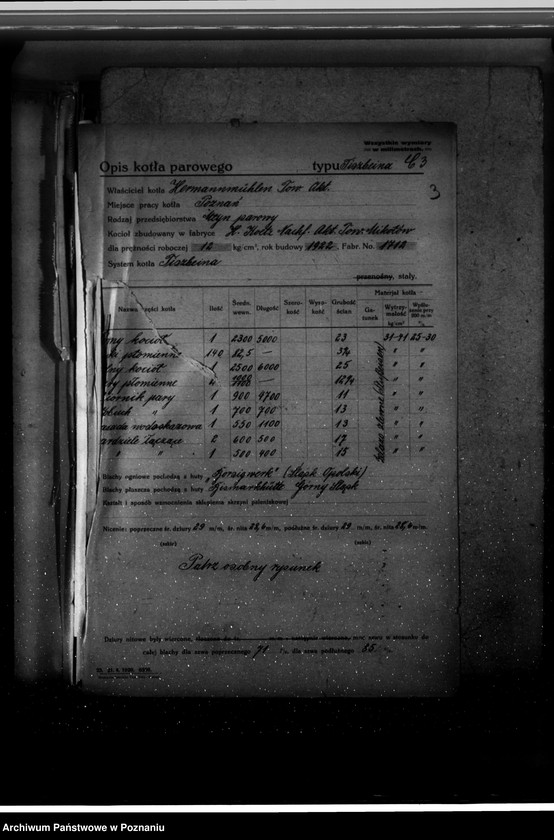 Wszystkie wymiary
w milimetrach.
Opis kotła parowego typu Tiszbeina C3
3
Właściciel kotła Hermannmühlen Tow. Akt.
Miejsce pracy kotła Poznań
Rodzaj przedsiębiorstwa Młyn parowy
Kocioł zbudowany w fabryce H. Koetz Nachf. Akt. Tow. Mikołów
dla prężności roboczej 12 kg/cm², rok budowy 1922, Fabr. No.
System kotła Tiszbeina
przenośny, stały.
Nazwa części kotła Ilość Średn. wewn. Długość Szerokość Wysokość Grubość ścian Materjał kotła
Gatunek Wytrzymałość kg/cm² %
kocioł 1 2300 5000 23 31-41 25-30
płomienne 140 82,5 — 3¾ " "
kocioł 1 2500 6000 25 " "
płomienne — " "
pary 1 900 4700 11 " "
" 1 700 700 13 " "
wodoskazowa 1 550 1100 13 " "
łączące 2 600 500 17 " "
" " 1 500 400 15 " "
Blachy ogniowe pochodzą z huty „Borsigwerk" (Śląsk Opolski)
Blachy płaszcza pochodzą z huty Bismarkhütte Górny Śląsk
Kształt i sposób wzmocnienia sklepienia skrzyni paleniskowej
Nicenie: poprzeczne śr. dziury 29 m/m, śr. nita 28,6 m/m, podłużne śr. dziury 29 m/m, śr. nita 28,6 m/m.
(szkic) (szkic)
Patrz osobny rysunek
Dziury nitowe były wiercone,
całej blachy dla szwu poprzecznego 71 %, dla szwu podłużnego 85
Archiwum Państwowe w Poznaniu